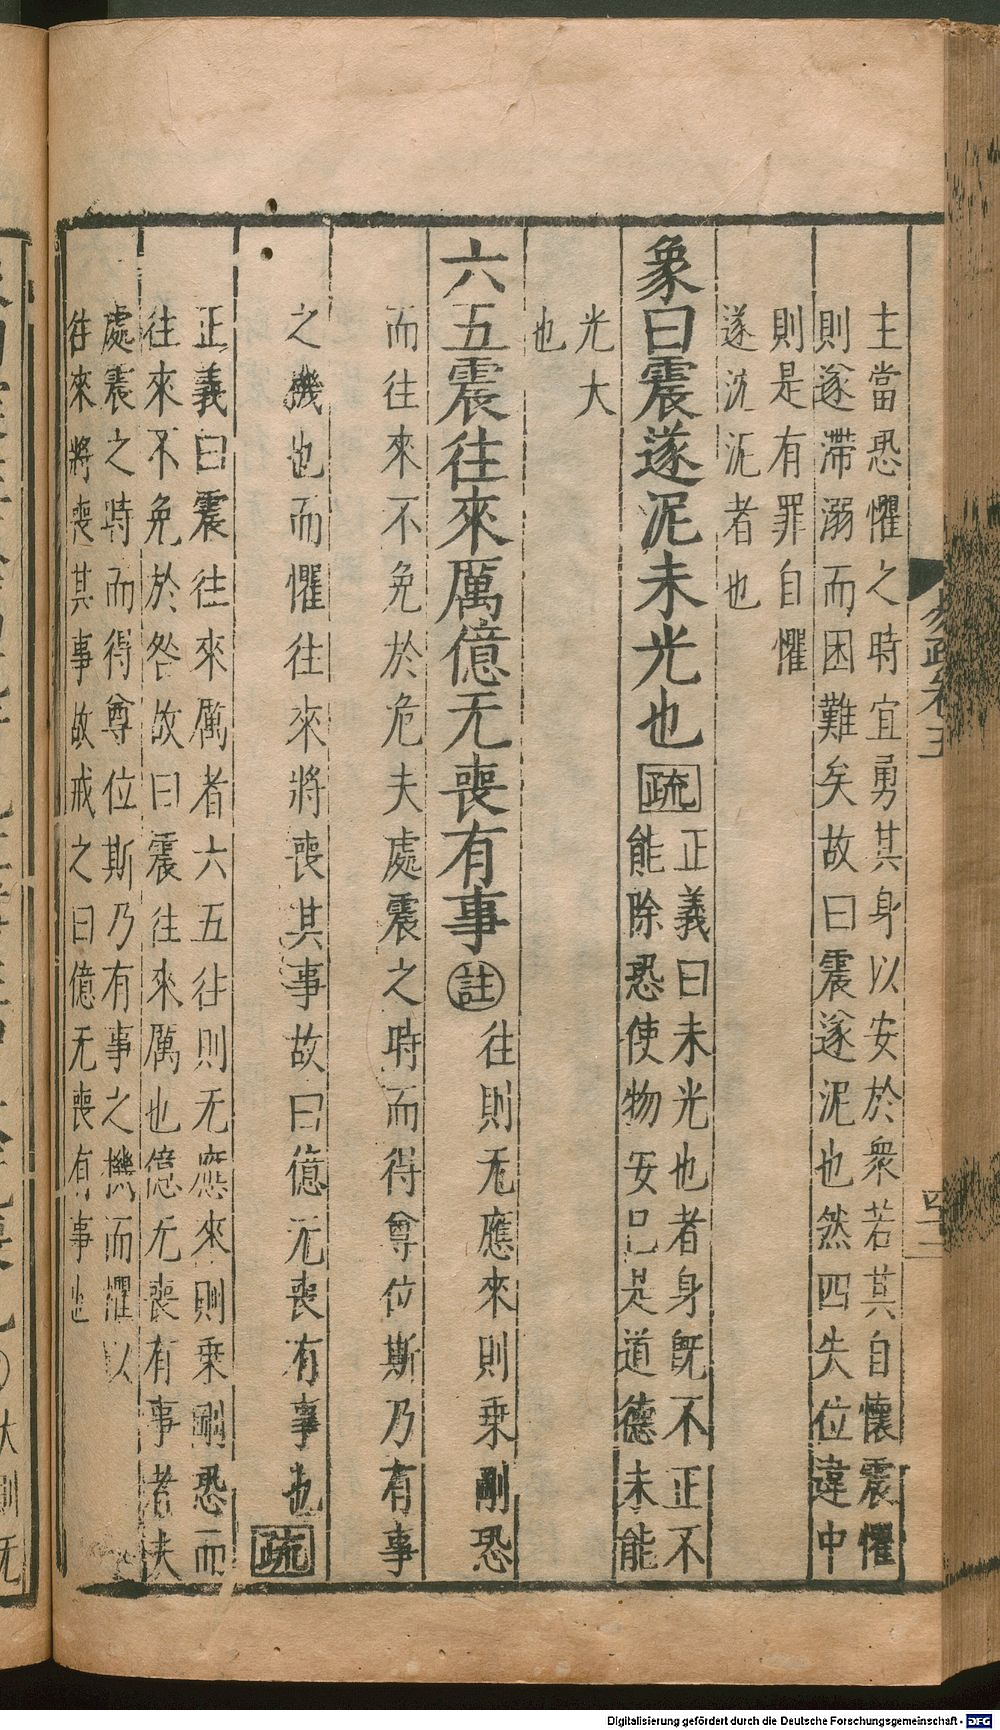 主當恐懼之時宜勇其身以安於衆若其自懷震懼
則遂滯溺而困難矣故曰震遂泥也然四失位違中
則是有罪自懼
遂沈泥者也
象曰震遂泥未光也疏
正義曰未光也者身旣不正不
能除恐使物安己是道德未能
光大
也
六五震往來厲億无喪有事註
往則无應來則乗剛恐
而往來不免於危夫處震之時而得尊位斯乃有事
之機也而懼往來將喪其事故曰億无喪有事也疏
正義曰震往來厲者六五往則无應來則乗剛恐而
往來不免於咎故曰震往來厲也億无喪有事者夫
處震之時而得尊位斯乃有事之機而懼以
往來將喪其事故戒之曰億无喪有事也
易疏卷五
四二
大剛无
Digitalisierung gefördert durch die Deutsche Forschungsgemeinschaft - DFG